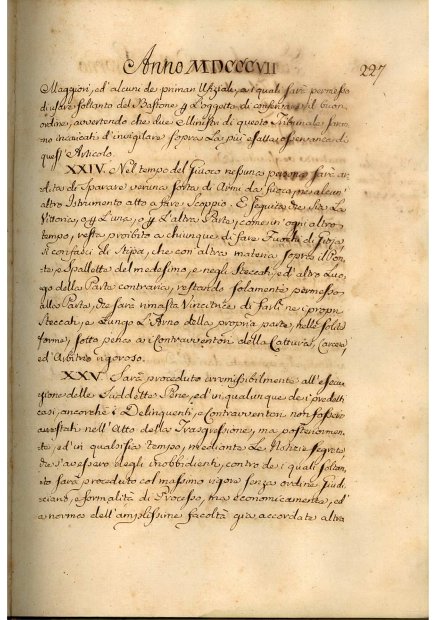 Anno MDCCCVII
227
Maggiori, ed alcuni de primari Ufiziale, a i quali sarà permesso
di usare soltanto del Bastone p l'oggetto di conservare il buon
ordine, avvertendo che due Ministri di questo Tribunale saran
no incaricati d'invigilare sopra la più esatta osservanza di
quest'Articolo.
XXIV. Nel tempo del Giuoco nessuna persona sarà ar
dita di Sparare veruna sorta di Armi da fuoco, ne alcun'
altro Istrumento atto a fare Scoppio. E seguita che sia la
Vittoria, o p l'una, o p l'altra Parte, come in ogni altro
tempo, resta proibito a chiunque di fare Fuochi di Gioja
si con fasci di Stipa, che con altra materia sopra il Pon
te, e Spallette del medesimo, e negli Steccati, ed altro Luo
go della Parte contraria, restando solamente permesso
alla Parte, che sarà rimasta Vincitrice di farli nei propri
Steccati, e Lungo l'Arno della propria parte, nelle solite
forme, sotto pena ai Contravventori della Cattura, Carcere,
ed Arbitrio rigoroso.
XXV. Sarà proceduto irremissibilmente all'esecu
zione delle Suddette Pene, ed in qualunque dei predetti
casi, ancorchè i Delinquenti, e Contravventori non fossero
arrestati nell'Atto della Trasgressione, ma posteriormen
te, ed in qualsisia tempo, mediante le Notizie segrete,
che s'avessero degli inobbidienti, contro de i quali soltan
to sarà proceduto col massimo rigore senza ordine Giudi
ciario, e formalità di Processo, ma economicamente, ed
a norma dell'amplissime facoltà già accordate altra